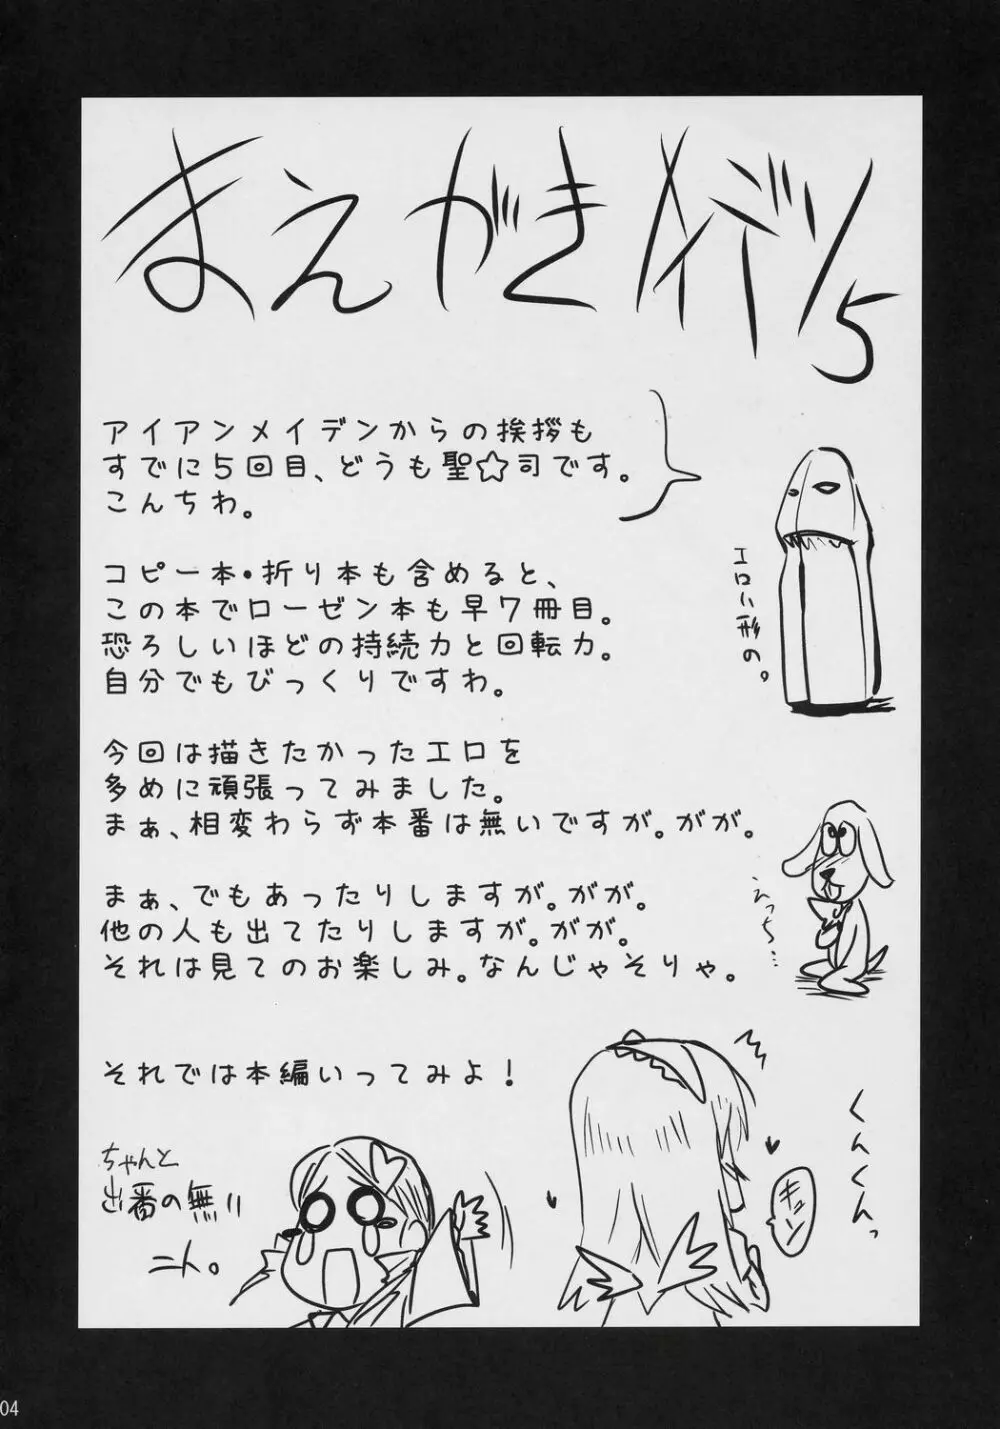 まえがきメイデン5
アイアンメイデンからの挨拶も
すでに5回目、どうも聖☆司です。
こんちわ。
エロい形の。
コピー本・折り本も含めると、
この本でローゼン本も早7冊目。
恐ろしいほどの持続力と回転力。
自分でもびっくりですわ。
今回は描きたかったエロを
多めに頑張ってみました。
まぁ、相変わらず本番は無いですが。がが。
まぁ、でもあったりしますが。がが。
他の人も出てたりしますが。がが。
それは見てのお楽しみ。なんじゃそりゃ。
えっち…
それでは本編いってみよ！
くんくんっ
キュン
ちゃんと
出番の無い
ニト。
04